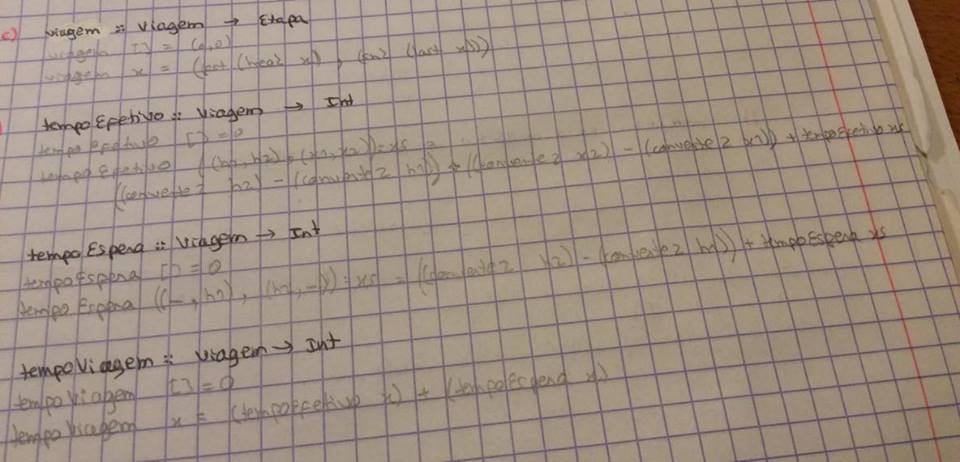 c) viagem :: Viagem → Etapa
viagem [] = (0,0)
viagem x = (fst (head x)) , (snd (last x)))
tempoEfetivo :: Viagem → Int
tempoEfetivo [] = 0
tempoEfetivo ((h1, h2), (x1, x2)):xs =
((converte2 h2) - (converte2 h1)) + ((converte2 x2) - (converte2 x1)) + tempoEfetivo xs
tempoEspera :: Viagem → Int
tempoEspera [] = 0
tempoEspera ((_, h1), (h2, _)):xs = ((converte2 h2) - (converte2 h1)) + tempoEspera xs
tempoViagem :: Viagem → Int
tempoViagem [] = 0
tempoViagem x = (tempoEfetivo x) + (tempoEspera x)